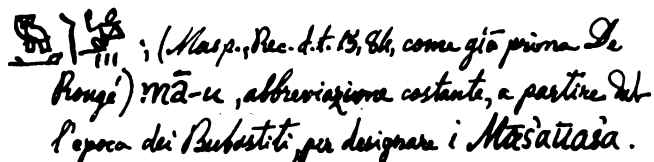 ; (Masp., Rec. d. t. 15, 84, come già prima De
Rougé) mā-u, abbreviazione costante, a partire dal
l'epoca dei Bubastiti, per designare i Māšaūaša.